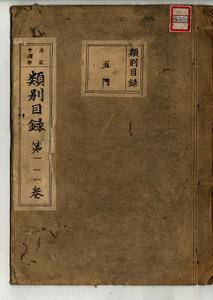 類別目録
五門
大正
十四年
類別目録
第一一一卷